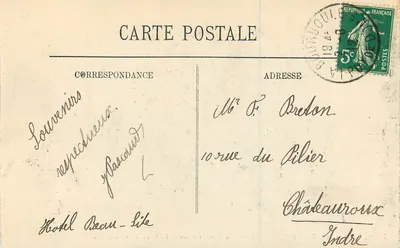 CARTE POSTALE
CORRESPONDANCE
ADRESSE
RÉPUBLIQUE FRANÇAISE
5c
Souvenirs
respectueux
Hotel Beau-Site
Mr F Breton
10 rue du Pilier
Châteauroux
Indre